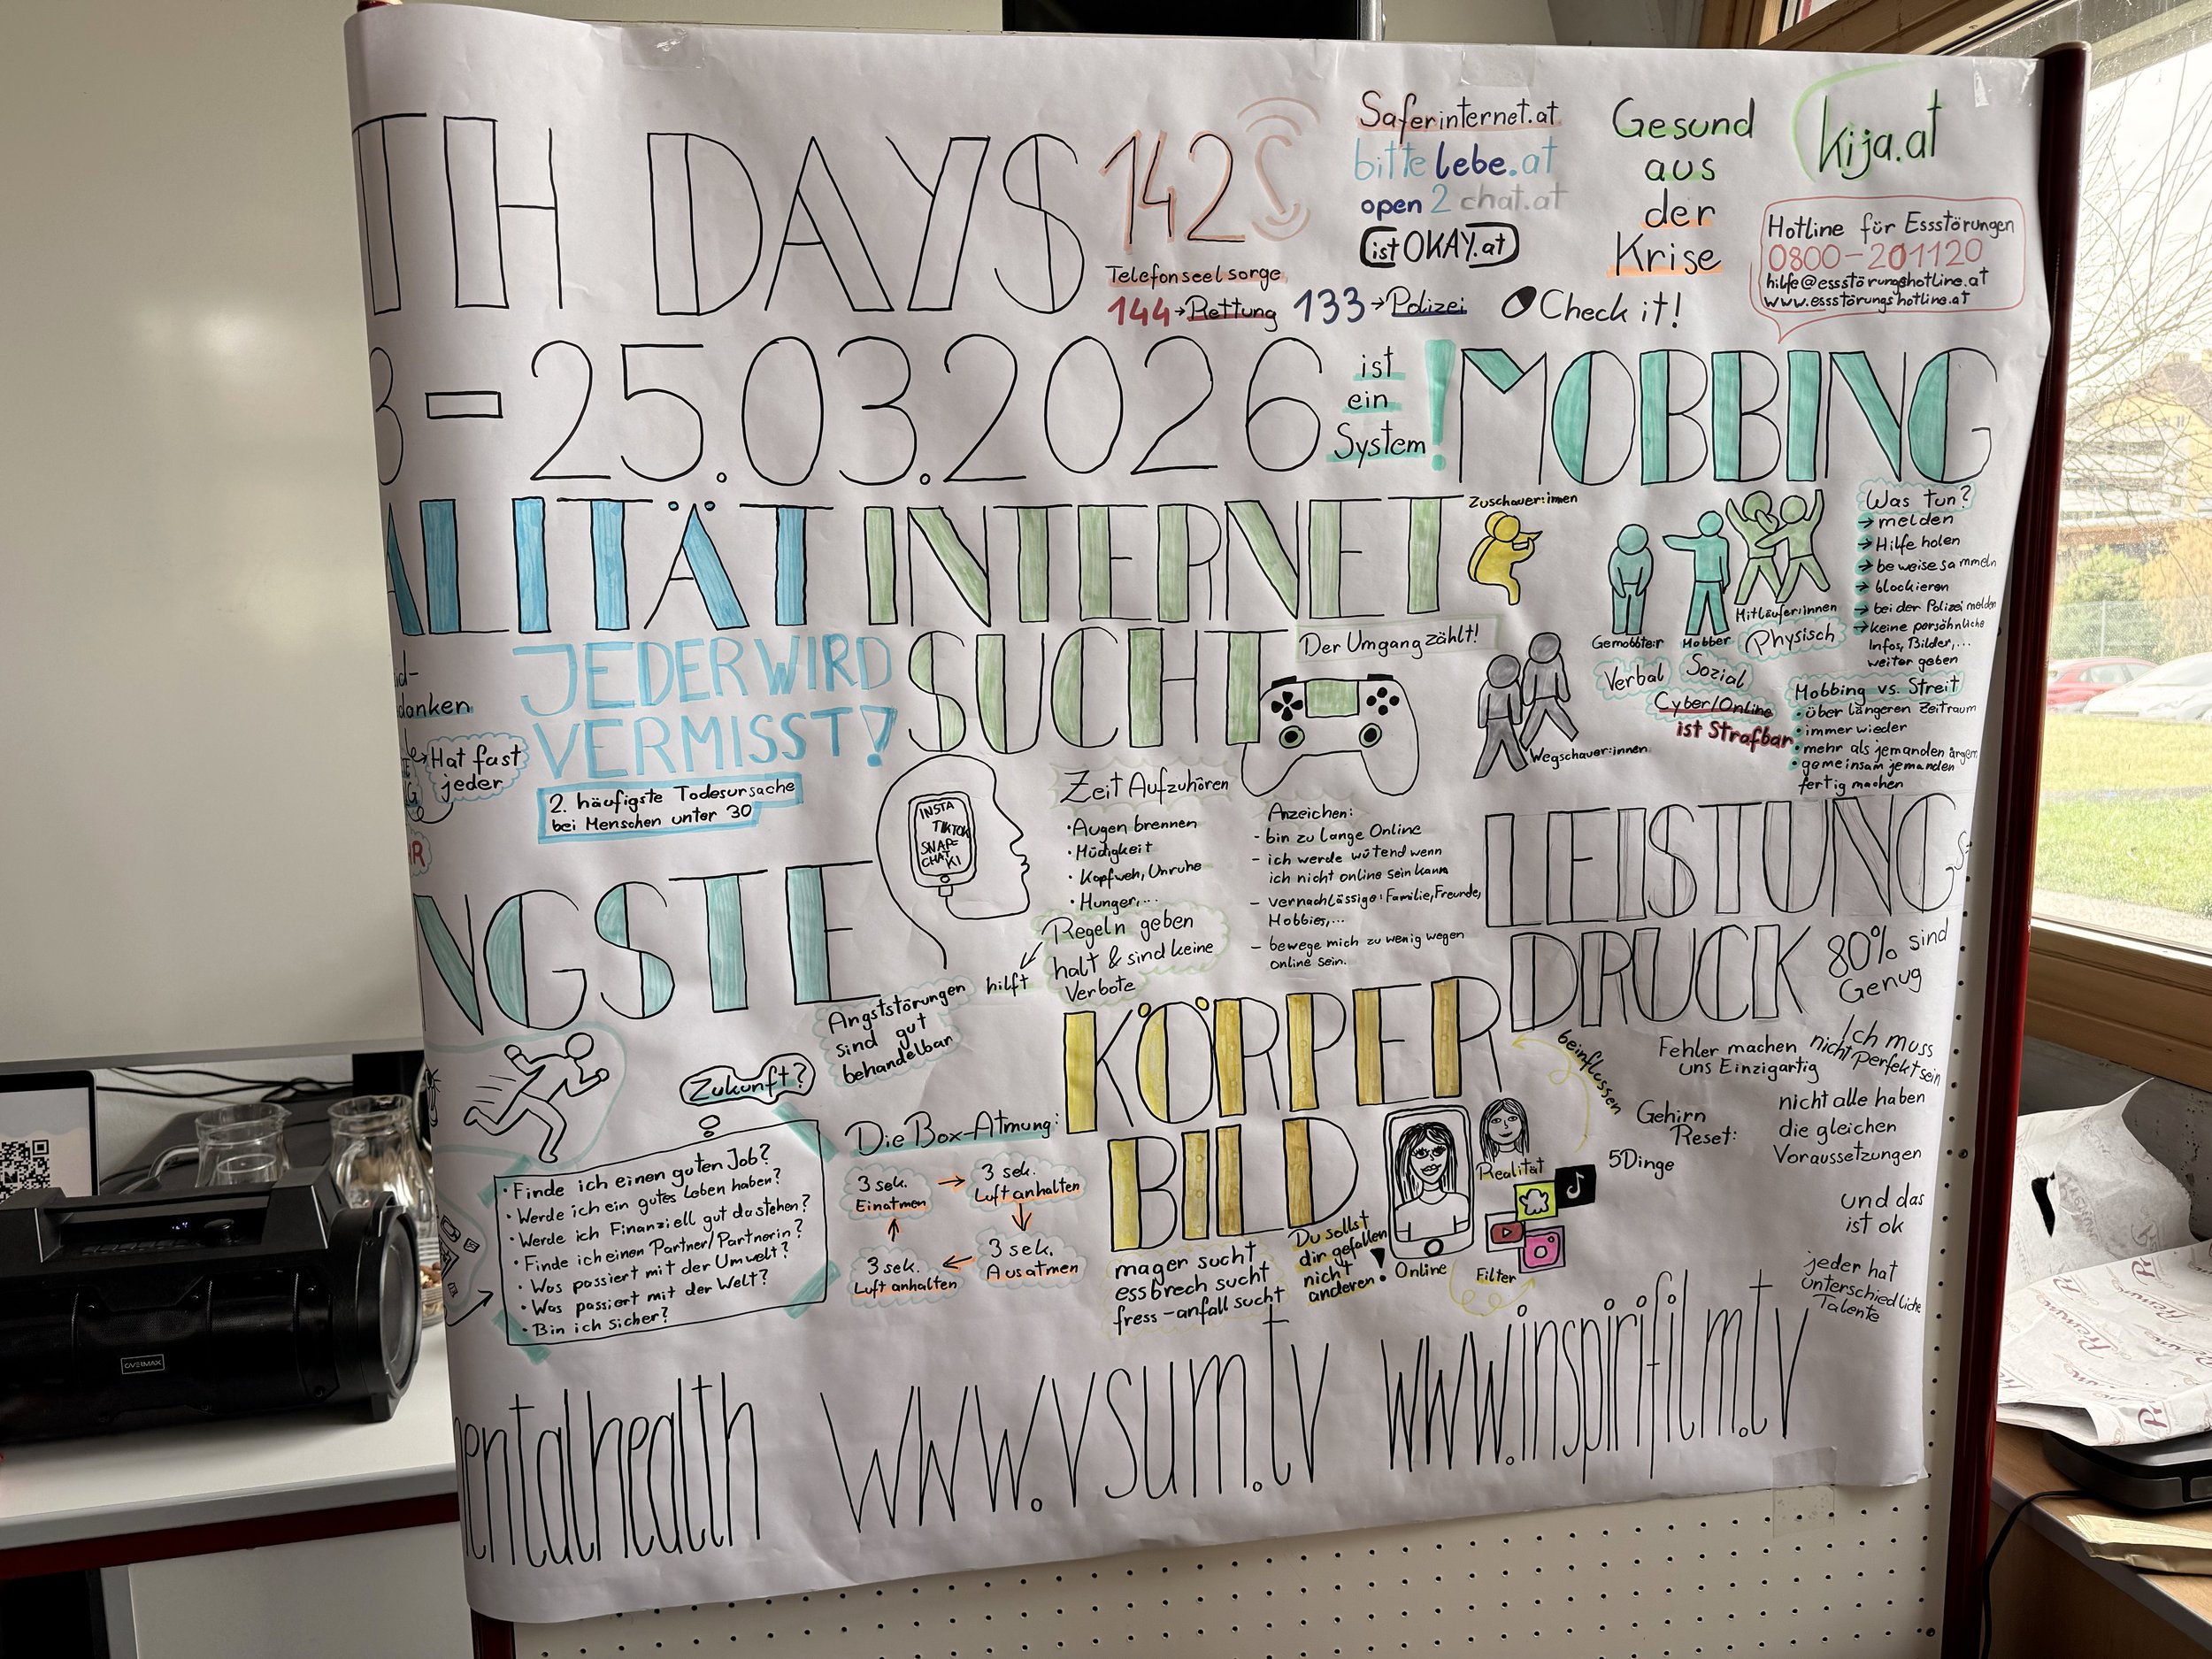 TH DAYS
142
Telefonseelsorge
144→Rettung 133→Polizei
Saferinternet.at
bittelebe.at
open2chat.at
istOKAY.at
Check it!
Gesund
aus
der
Krise
kija.at
Hotline für Essstörungen
0800-201120
hilfe@essstörungshotline.at
www.essstörungshotline.at
3-25.03.2026
ist
ein
System!
MOBBING
Zuschauer:innen
Gemobbte:r
Mobber
Mitläufer:innen
Wegschauer:innen
Verbal
Sozial
Physisch
Cyber/Online
ist Strafbar
Was tun?
→ melden
→ Hilfe holen
→ beweise sammeln
→ blockieren
→ bei der Polizei melden
→ keine persöhnliche
Infos, Bilder,...
weiter geben
Mobbing vs. Streit
• über längeren Zeitraum
• immer wieder
• mehr als jemanden ärgern
• gemeinsam jemanden
fertig machen
ALITÄT
danken
JEDER WIRD
VERMISST!
Hat fast
jeder
2. häufigste Todesursache
bei Menschen unter 30
INTERNET
SUCHT
Der Umgang zählt!
INSTA
TIKTOK
SNAP-
CHAT
KI
Zeit Aufzuhören
• Augen brennen
• Müdigkeit
• Kopfweh, Unruhe
• Hunger,...
Regeln geben
halt & sind keine
Verbote
hilft
Anzeichen:
- bin zu lange Online
- ich werde wütend wenn
ich nicht online sein kann
- vernachlässige: Familie, Freunde,
Hobbies,...
- bewege mich zu wenig wegen
online sein.
NGSTE
Angststörungen
sind gut
behandelbar
Zukunft?
• Finde ich einen guten Job?
• Werde ich ein gutes Leben haben?
• Werde ich Finanziell gut dastehen?
• Finde ich einen Partner/Partnerin?
• Was passiert mit der Umwelt?
• Was passiert mit der Welt?
• Bin ich sicher?
Die Box-Atmung:
3 sek.
Einatmen
3 sek.
Luft anhalten
3 sek.
Ausatmen
3 sek.
Luft anhalten
KÖRPER
BILD
mager sucht
essbrech sucht
fress-anfall sucht
Du sollst
dir gefallen
nicht
anderen!
Online
Realität
Filter
beinflussen
LEISTUNGS-
DRUCK
80% sind
Genug
Fehler machen
uns Einzigartig
Ich muss
nicht Perfekt sein
Gehirn
Reset:
5Dinge
nicht alle haben
die gleichen
Voraussetzungen
und das
ist ok
jeder hat
unterschiedliche
Talente
mentalhealth www.vsum.tv www.inspirifilm.tv
OVERMAX